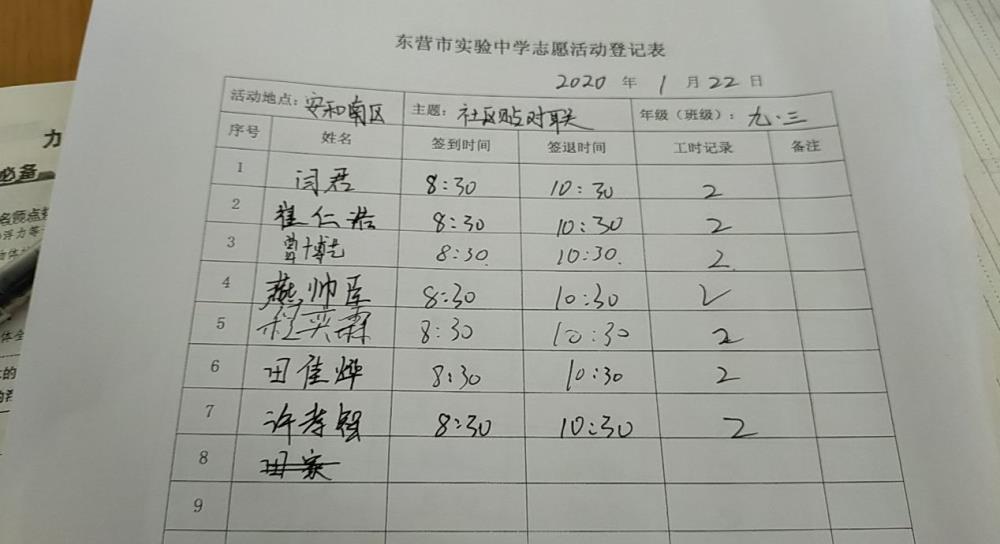 东营市实验中学志愿活动登记表
2020 年 1 月 22 日
活动地点：安和南区 主题：社区贴对联 年级（班级）：九.三
序号 姓名 签到时间 签退时间 工时记录 备注
1 闫君 8:30 10:30 2
2 崔仁浩 8:30 10:30 2
3 曹博艺 8:30. 10:30. 2.
4 燕帅臣 8:30 10:30 2
5 程奕霖 8:30 10:30 2
6 田佳烨 8:30 10:30 2
7 许孝强 8:30 10:30 2
8
9
力
必备